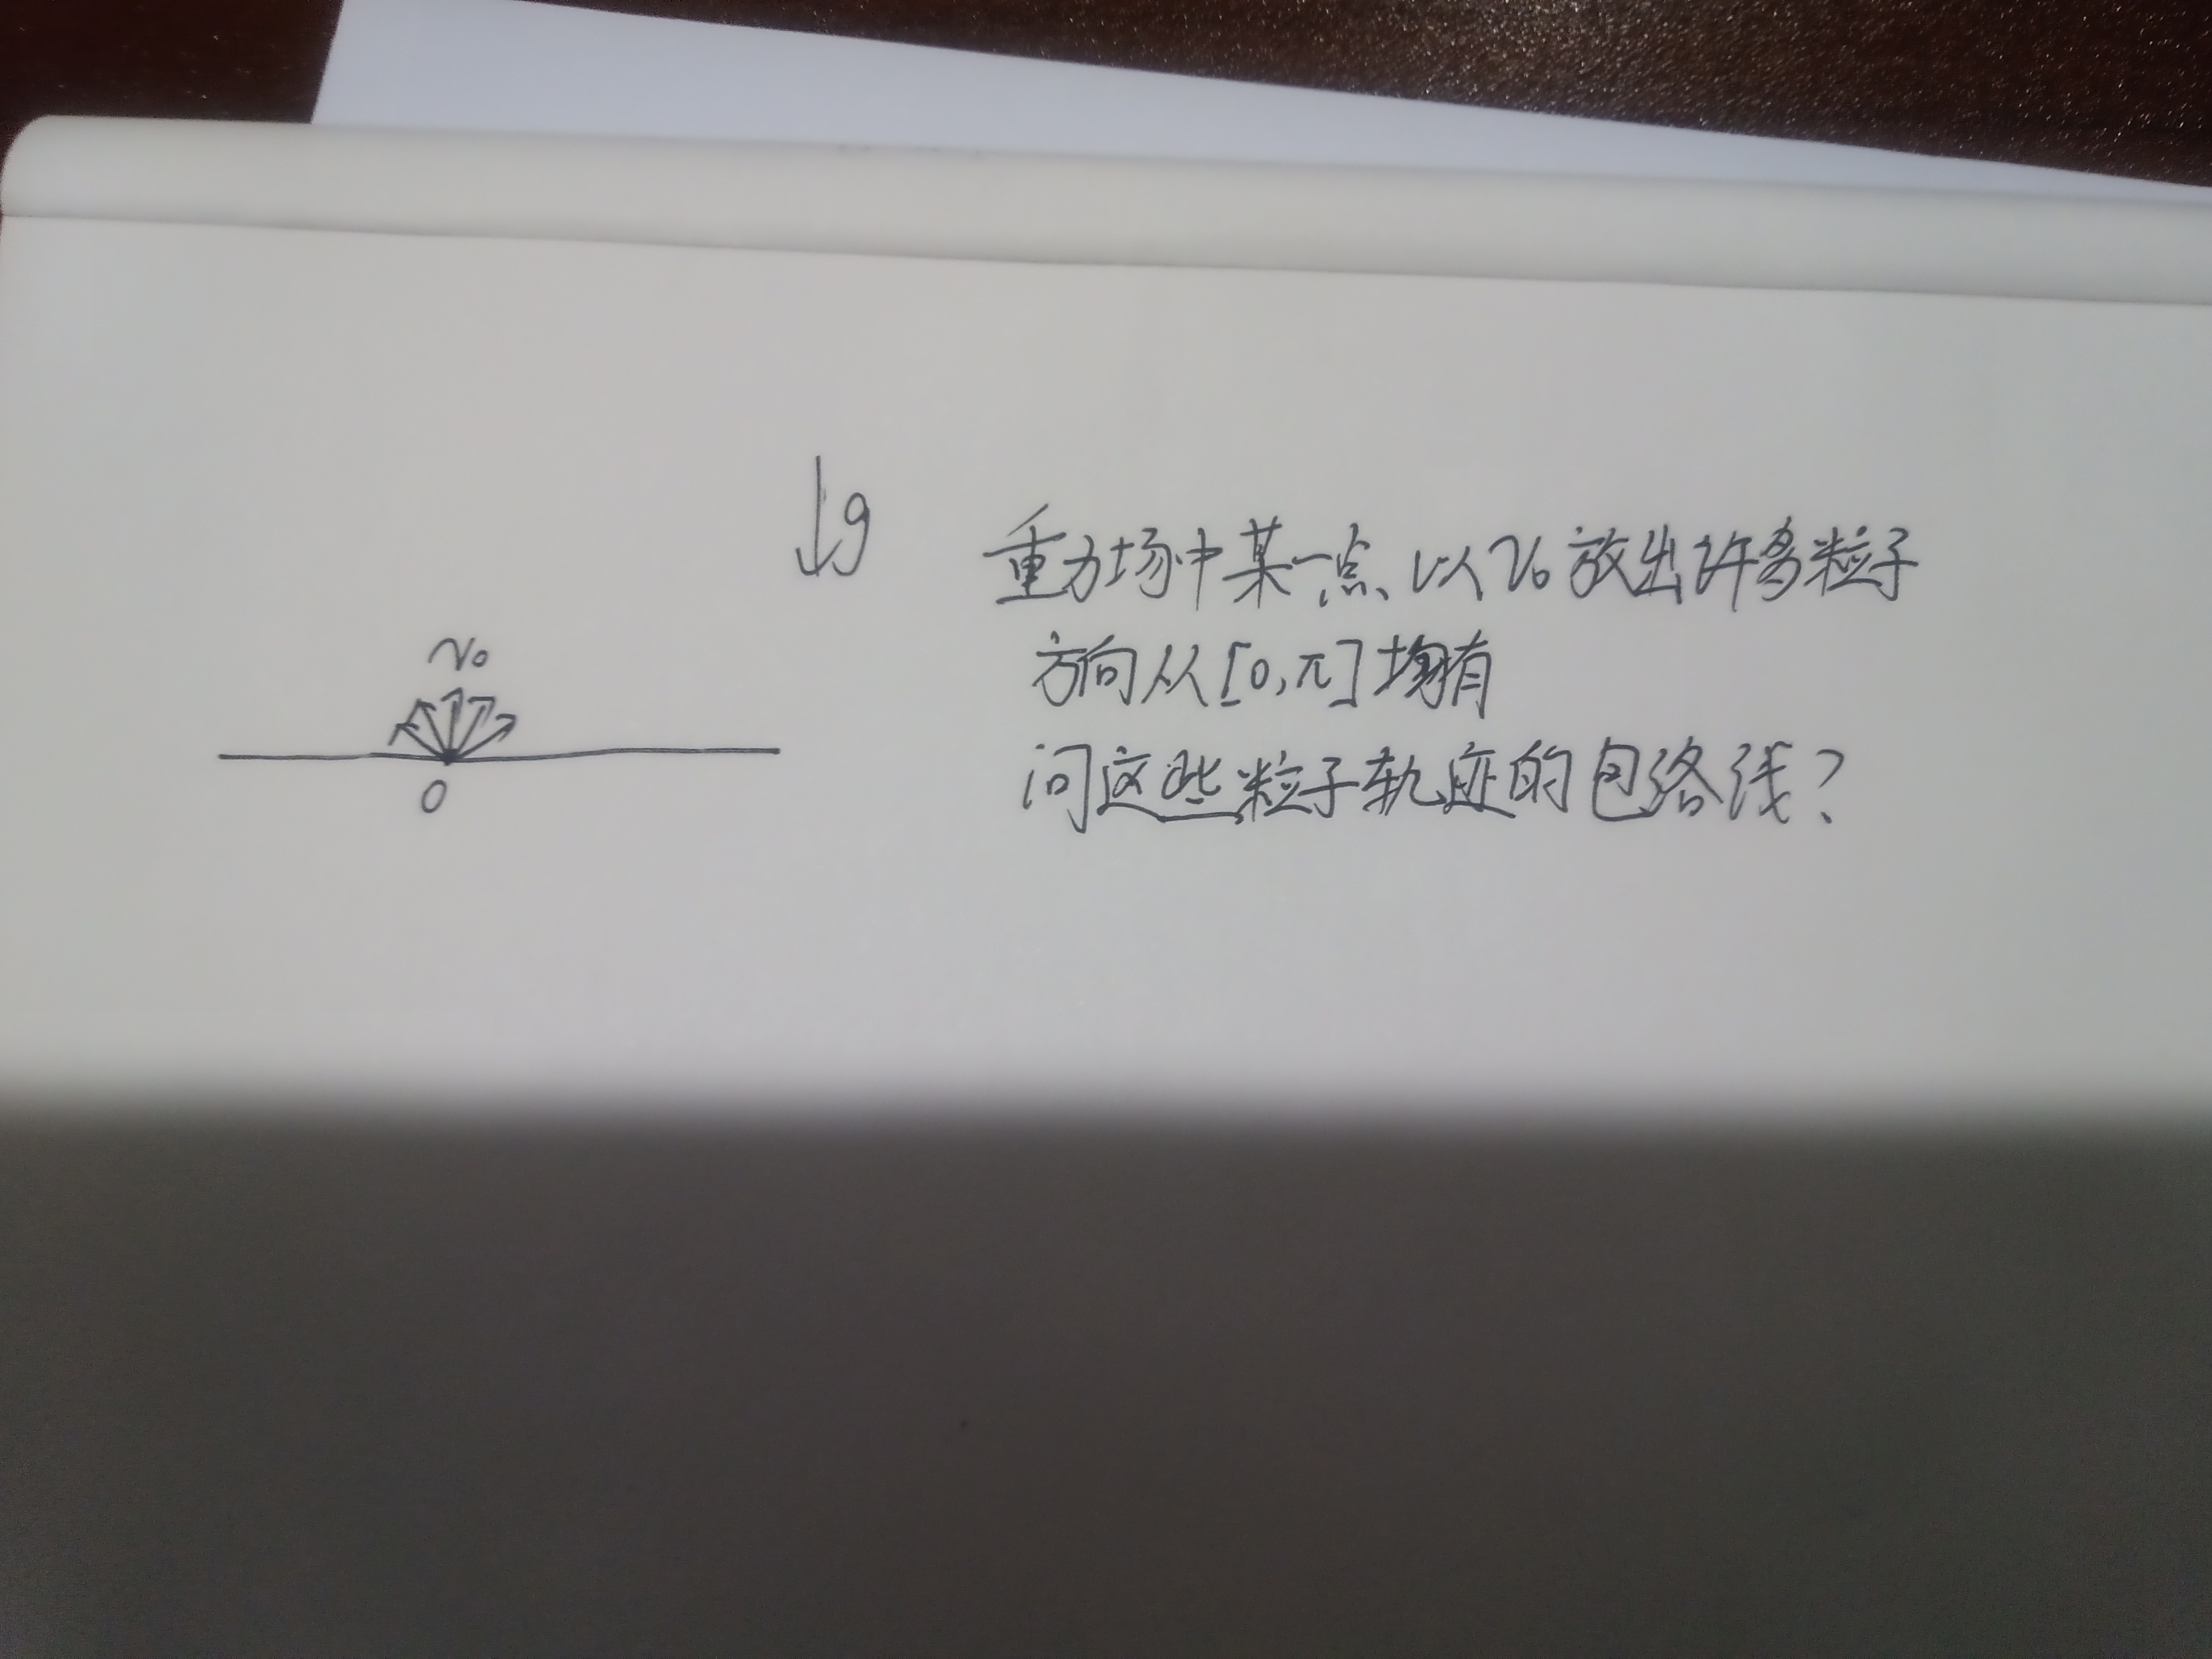 ↓g
重力场中某一点、以v₀放出许多粒子
方向从[0,π]均有
问这些粒子轨迹的包络线？
v₀
O